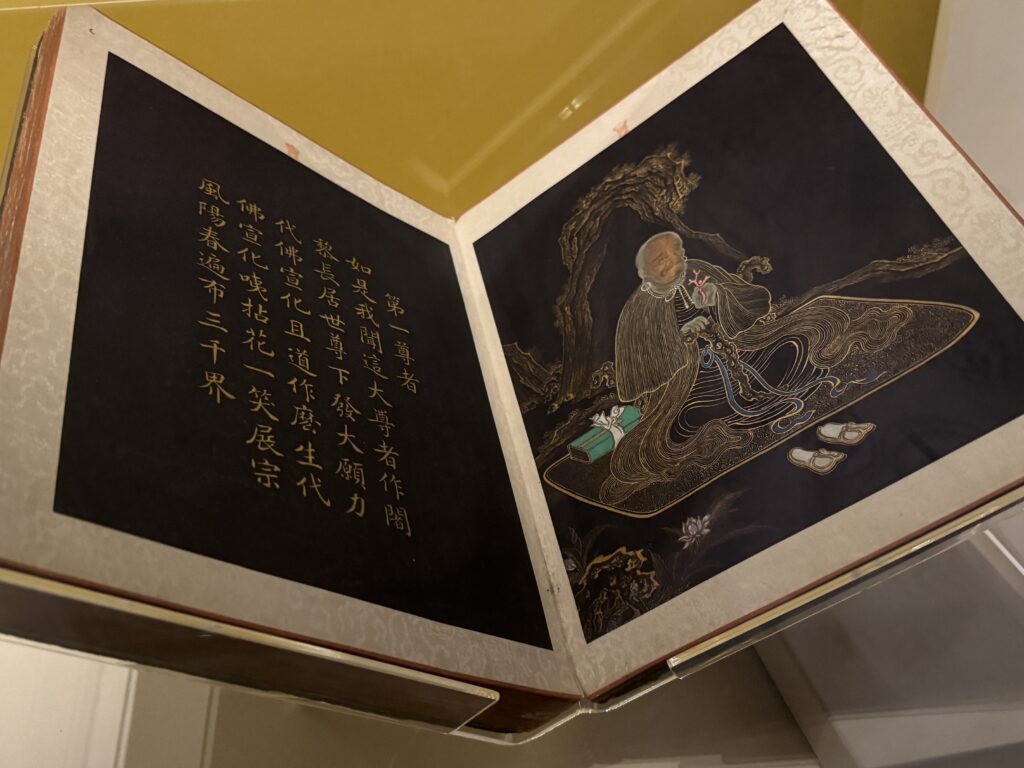 第一尊者
如是我聞這大尊者作闍
黎長居世尊下發大願力
代佛宣化且道作麽生代
佛宣化嘎拈花一笑展宗
風陽春遍布三千界